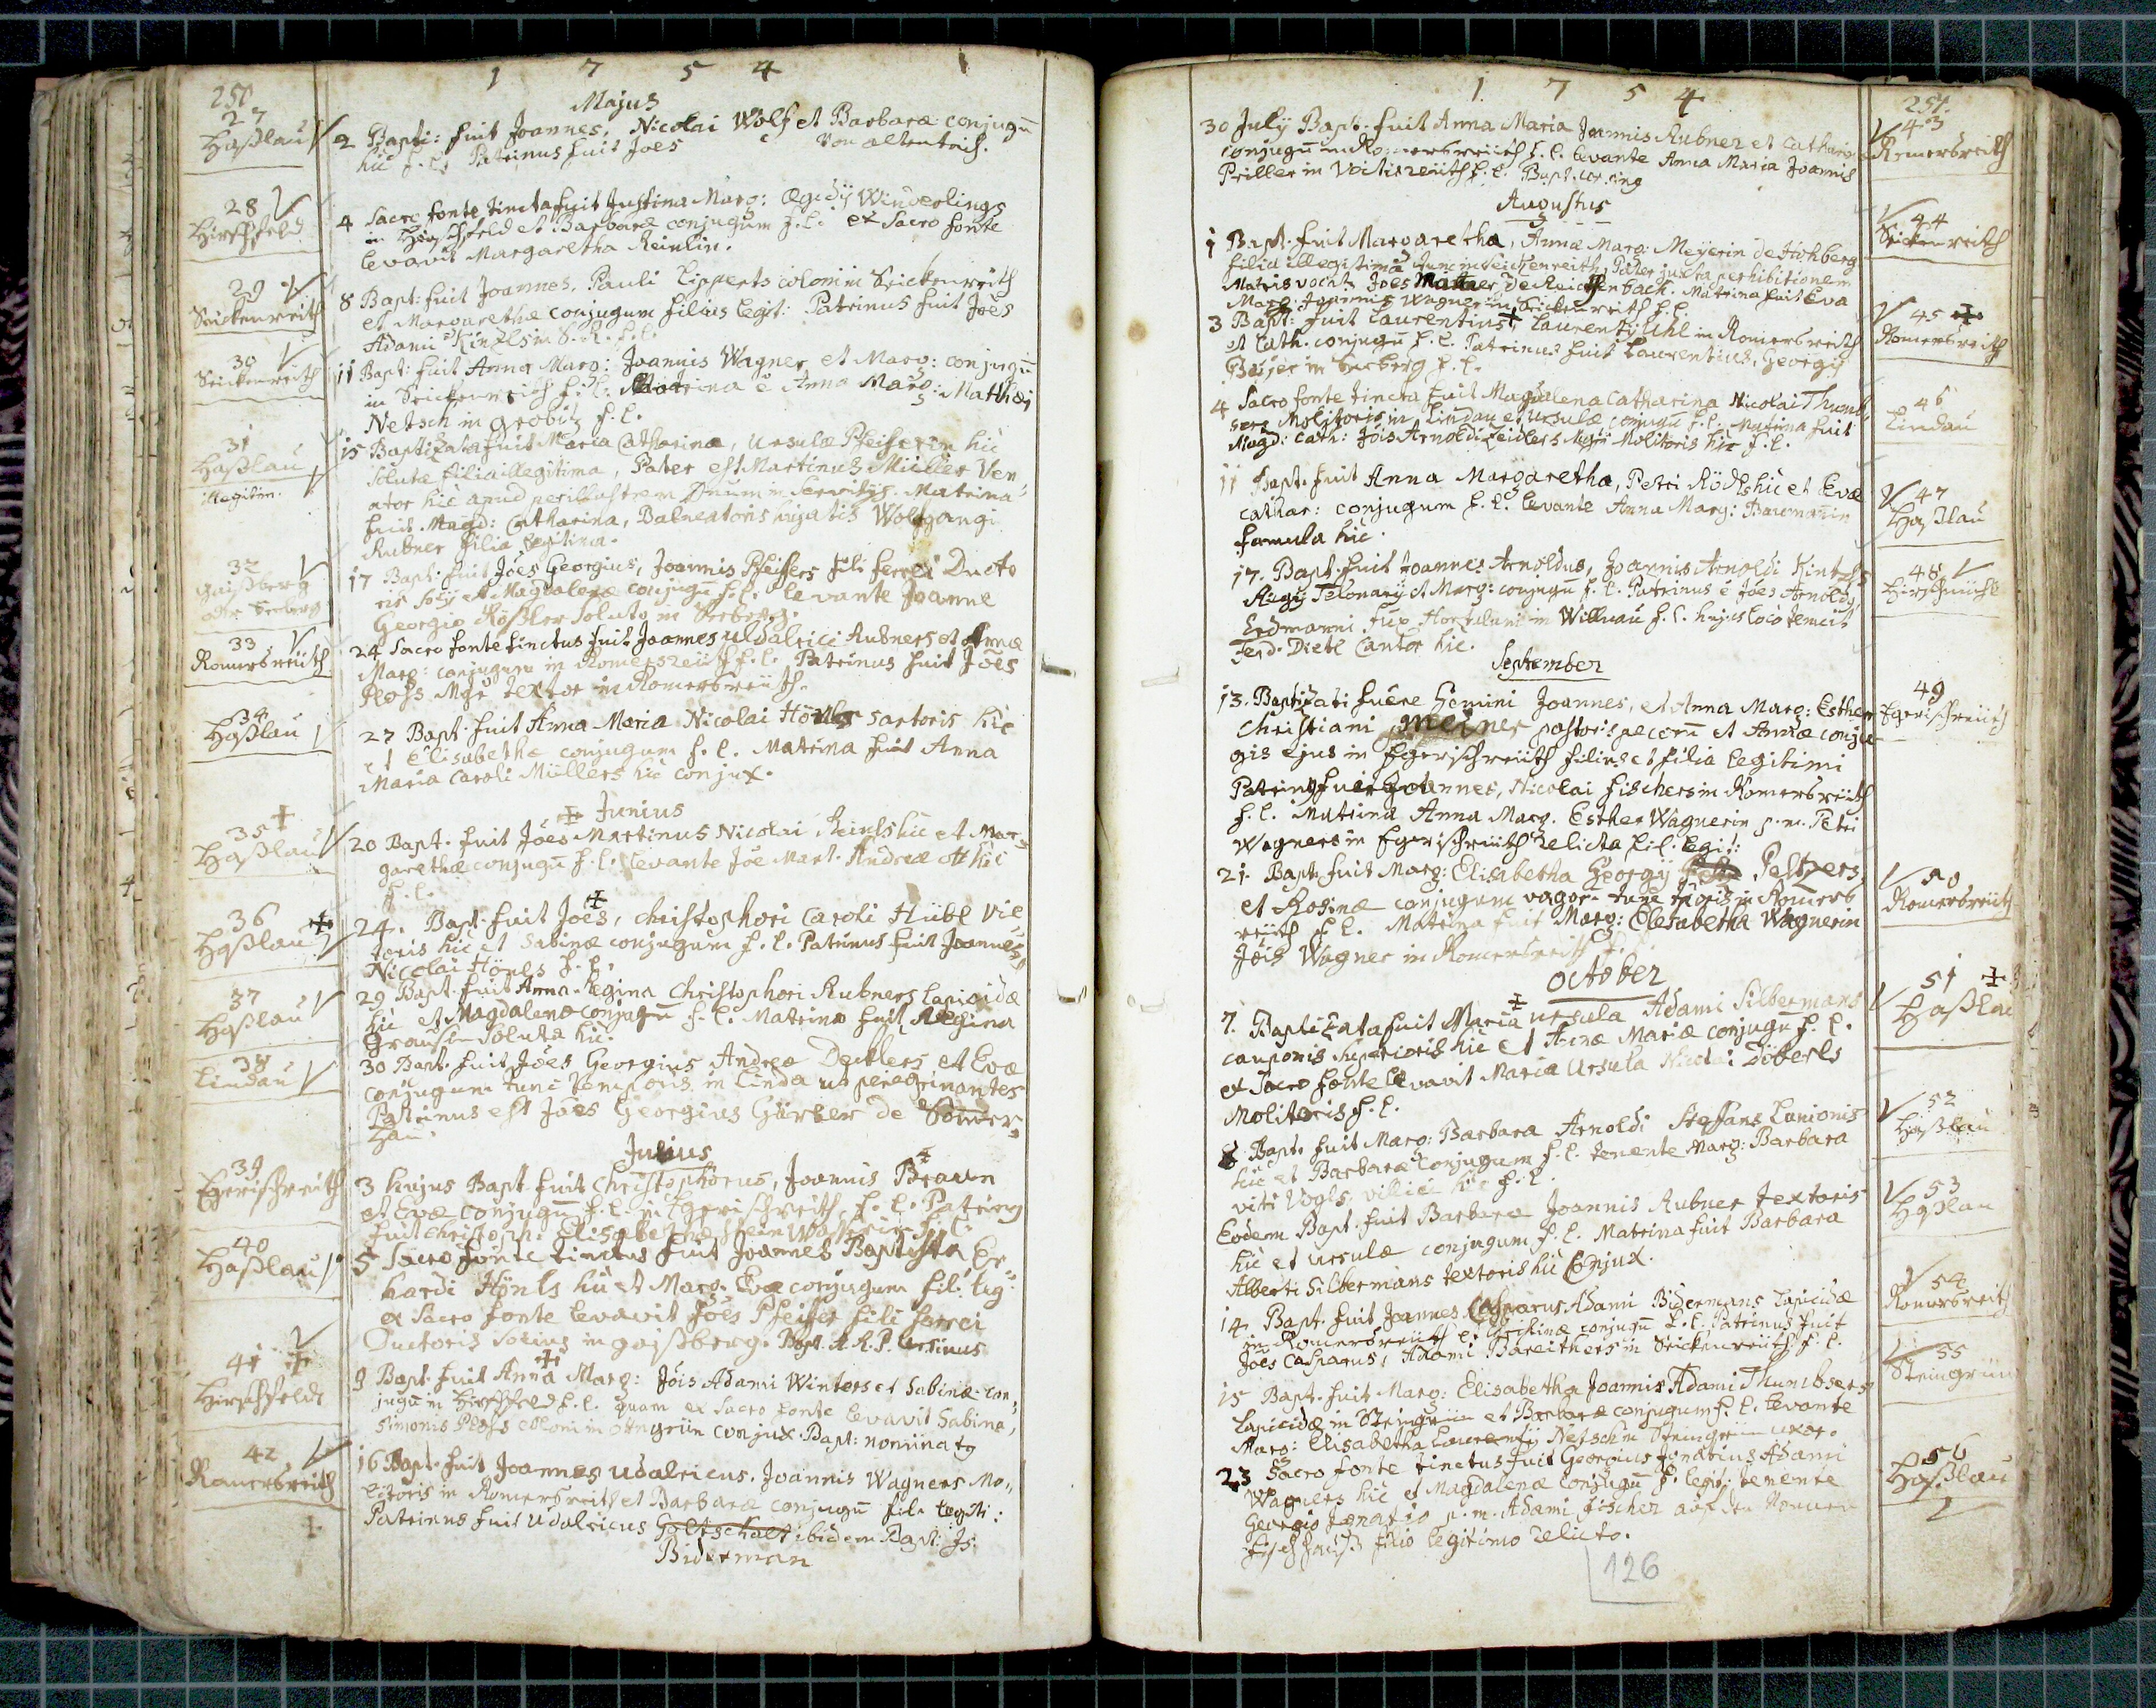 1 7 5 4
250
Majus
27
Haßlau
2 Bapti: fuit Joannes, Nicolai Wolf et Barbara conjugū
hic f. l. Patrinus fuit Joes Von altentrich.
28
Hirschfeld
4 Sacro fonte tincta fuit Justina Marg: Ægidij Winderlings
in Hirschfeld et Barbaræ conjugum f. l. ex Sacro fonte
levavit Margaretha Reinlin.
29
Seickenreith
8 Bapt: fuit Joannes, Pauli Lipperts coloni in Seickenreith
et Margarethæ conjugum filius legit: Patrinus fuit Joes
Adami Kinzls in S. R. f. l.
30
Seickenreith
11 Bapt: fuit Anna Marg: Joannis Wagner et Marg: conjugū
in Seickenreith f. l. Matrina ē Anna Marg: Matthæi
Netsch in grobitz f. l.
31
Haßlau
illegitim.
15 Baptizata fuit Maria Catharina, Ursulæ Pfeiferin hic
Soluta filia illegitima, Pater est Martinus Müller Ven
ator hic apud perillustrem Dnum in servitijs. Matrina
fuit Magd: Catharina, Balneatoris hujatis Wolfgangi
Rubner filia legitima.
32
Gaißberg
17 Bapt: fuit Joes Georgius, Joannis Pfeifers fili ferrei Ducto
ris Socij et Magdalenæ conjugū f. l. levante Joanne
Georgio Rößler soluto in Seeberg.
33
Romersreith
24 Sacro fonte tinctus fuit Joannes Uldalrici Rubners et Annæ
Marg: conjugum in Romersreith f. l. Patrinus fuit Joes
Ploß Mgr textor in Romersreith.
34
Haßlau
27 Bapt. fuit Anna Maria Nicolai Hönls sartoris hic
et Elisabethæ conjugum f. l. Matrina fuit Anna
Maria Caroli Müllers hic conjux.
Junius
35
Haßlau
20 Bapt. fuit Joes Martinus Nicolai Reinls hic et Mar
garethæ conjugū f. l. levante Joe Mart. Andreæ ott hic
f. l.
36
Haßlau
24. Bapt. fuit Joes, Christophori Caroli Hübl Vie
toris hic et Sabinæ conjugum f. l. Patrinus fuit Joannes
Nicolai Hönls f. l.
37
Haßlau
29 Bapt. fuit Anna Regina Christophori Rubners lapicidæ
hic et Magdalenæ conjugū f. l. Matrina fuit Regina
soluta hic.
38
Lindau
30 Bapt. fuit Joes Georgius Andreæ Decklers et Evæ
conjugum tunc temporis in Linda ut peregrinantes
Patrinus est Joes Georgius Gärber de Sommer
hau
Julius
39
Egerischreith
3 hujus Bapt. fuit Christophorus, Joannis Braun
et Evæ conjugū f. l. in Egerischreith, f. l. Patrinus
fuit Christoph: Elisabethæ f. l.
40
Haßlau
5 Sacro fonte tinctus fuit Joannes Baptista Er
hardi Hönls hic et Marg. Evæ conjugum fil. leg.
ex Sacro fonte levavit Joes Pfeiffer fili ferrei
Ductoris socius in gaißberg. Bapt. A. R. P. Ursinus
41
Hirschfeldt
9 Bapt. fuit Anna Marg: Jois Adami Winters et Sabinæ con
jugū in Hirschfeld f. l. quam ex Sacro fonte levavit Sabina,
Simonis Ploß coloni in ottngrün conjux. Bapt: nominatg
42
Romersreith
16 Bapt. fuit Joannes Udalricus, Joannis Wagners Mo
litoris in Romersreith et Barbaræ conjugū fil. legiti:
Patrinus fuit Udalricus Goltschalt ibidem Bapt: Js:
Biderman
1 7 5 4
251.
43
Romersreith
30 July Bapt. fuit Anna Maria Joannis Rubner et Catharinæ
conjugū in Romersreith f. l. levante Anna Maria Joannis
Priller in Voitisreith f. l. Bapt.
Augustus
44
Seickenreith
1 Bapt. fuit Margaretha, Annæ Marg: Meyerin de Fichberg
filia illegitima tunc in Seickenreith, Pater juxta perhibitionem
Matris vocatr Joes de Reichenbach. Matrina fuit Eva
Marg: Joannis Wagner in Seickenreith f. l.
45
Romersreith
3 Bapt: fuit Laurentius, Laurentij Uhl in Romersreith
et Cath. conjugū f. l. Patrinus fuit Laurentius, Georgij
in Seeberg f. l.
46
Lindau
4 Sacro fonte tincta fuit Magdalena Catharina Nicolai Thumb
sers Molitoris in Lindau et Ursulæ conjugū f. l. Matrina fuit
Magd: Cath: Jois Arnoldi Zeidlers Mgri Molitoris hic f. l.
47
Haßlau
11 Bapt. fuit Anna Margaretha, Petri Rödls hic et Evæ
Cathar: conjugum f. l. levante Anna Marg: Baumanin
famula hic.
48
Hirschmühl
17. Bapt. fuit Joannes Arnoldus, Joannis Arnoldi Kintzls
Regij Telonarij et Marg: conjugū f. l. Patrinus ē Joes Arnold
Erdmanni Fux Hortulani in Wildnau f. l. hujus loco tenuit
Ferd. Dietl Cantor hic.
September
49
Egerischreith
13. Baptizati fuêre Gemini Joannes, et Anna Marg: Esther
Christiani Meiner pastoris pecorū et Annæ conju
gis ejus in Egerischreith filius et filia legitimi
Patrinus fuit Joannes, Nicolai Fischers in Romersreith
f. l. Matrina Anna Marg. Esther Wagnerin p. m. Petri
Wagners in Egerischreith relicta fil. legit:
50
Romersreith
21. Bapt. fuit Marg: Elisabetha Georgij Peltzers
et Rosinæ conjugum vagor. tunc tporis in Romers
reith f. l. Matrina fuit Marg: Elesabetha Wagnerin
Jois Wagner in Romersreith f. l.
October
51
Haßlau
7. Baptizata fuit Maria Ursula Adami Silbermans
cauponis superioris hic et Annæ Mariæ conjugū f. l.
ex Sacro fonte levavit Maria Ursula Nicolai Döberls
Molitoris f. l.
52
Haßlau
8 Bapt. fuit Marg: Barbara Arnoldi Steffans Lanionis
hic et Barbaræ conjugum f. l. tenente Marg: Barbara
viti Vogls villici hic f. l.
53
Haßlau
Eodem Bapt. fuit Barbara Joannis Rubner Textoris
hic et Ursulæ conjugum f. l. Matrina fuit Barbara
Alberti Silbermans textoris hic Conjux.
54
Romersreith
14. Bapt. fuit Joannes Casparus Adami Bidermans Lapicidæ
in Romersreith et Christinæ conjugū f. l. Patrinus fuit
Joes Casparus, Adami Bareithers in Seickenreith f. l.
55
Steingrün
15 Bapt. fuit Marg: Elisabetha Joannis Adami Thumbsers
Lapicidæ in Steingrün et Barbaræ conjugum f. l. levante
Marg: Elisabetha Laurentij Netsch in Steingrün uxor.
56
Haßlau
23 Sacro fonte tinctus fuit Georgius Ignatius Adami
Wagners hic et Magdalenæ conjugū f. legit: tenente
Georgio Ignatio p. m. Adami Fischer auf den
filio legitimo relicto.
126